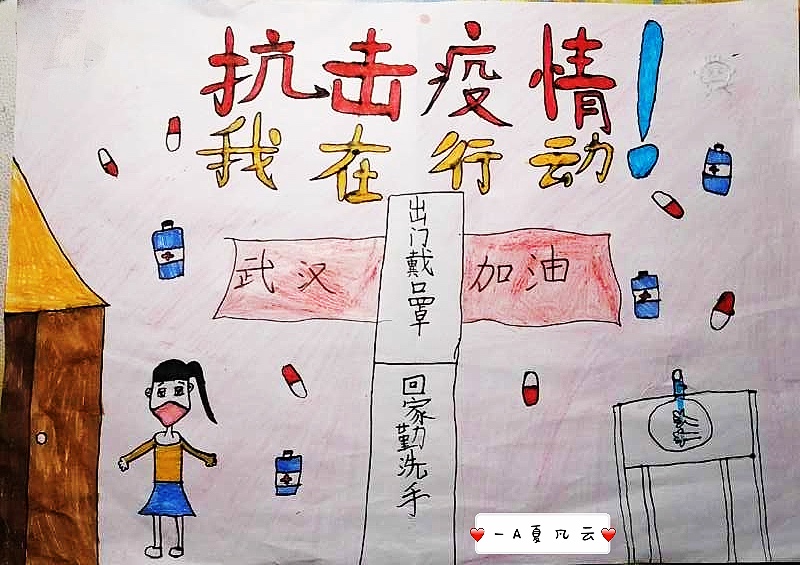 抗击疫情!
我在行动
武汉 加油
出门戴口罩
回家勤洗手
一A夏凡云